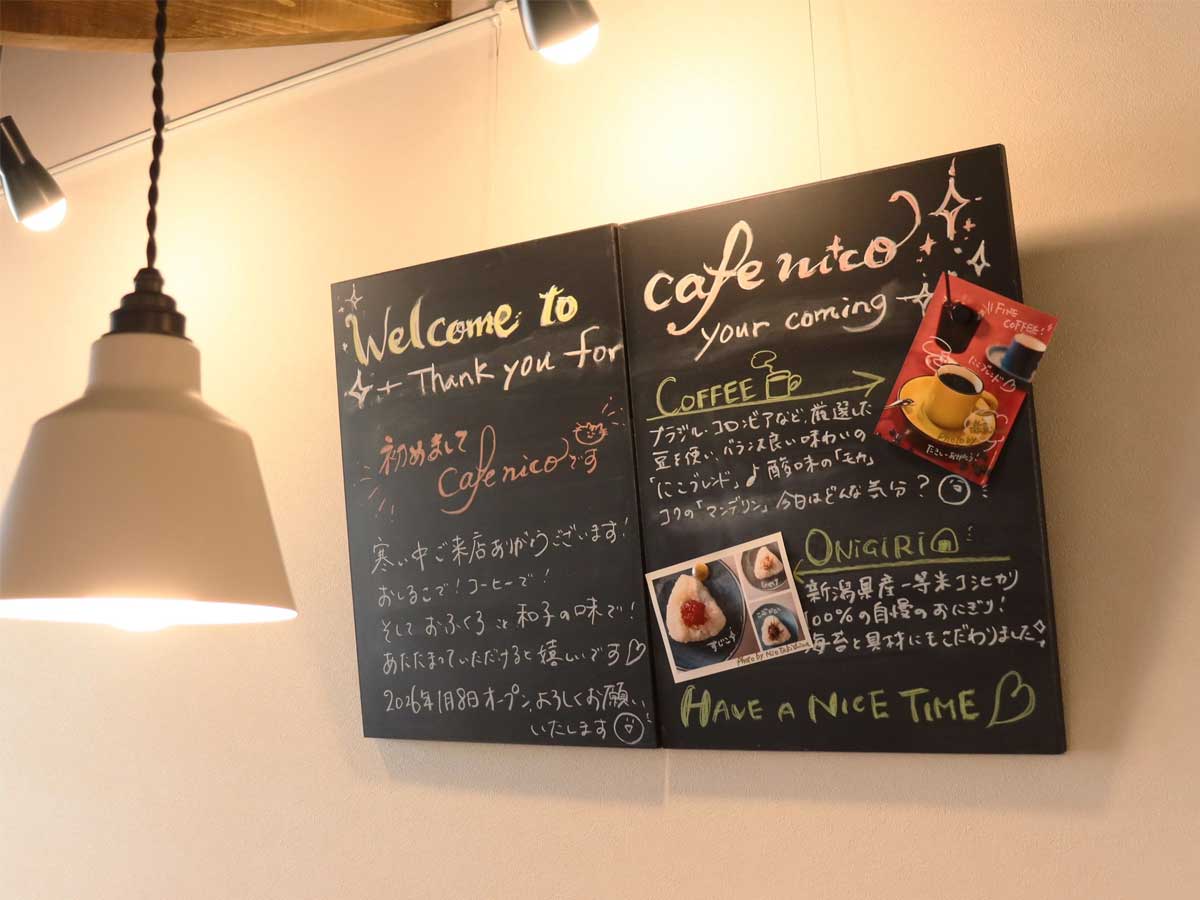 Welcome to
Thank you for
初めまして
Cafe nicoです
寒い中ご来店ありがとうございます!
おしるこで!コーヒーで!
そしておふくろと和子の味で!
あたたまっていただけると嬉しいです
2026年1月8日オープン、よろしくお願い
いたします
cafe nico
your coming
COFFEE
ブラジル・コロンビアなど、厳選した
豆を使い、バランス良い味わいの
「にこブレンド」♪酸味の「モカ」
コクの「マンデリン」今日はどんな気分?
FINE
COFFEE!
にこブレンド
Photo by
ださい・ありがとう!
ONiGiRi
新潟県産一等米コシヒカリ
100%の自慢のおにぎり!
海苔と具材にもこだわりました
すじこ
Photo by
HAVE A NICE TIME